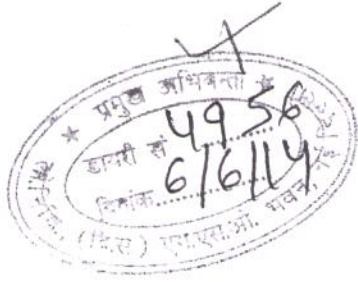 प्रमुख अभियन्ता
डायरी सं 4956
दिनांक 6/6/14
(दि.स) एम.एस.ओ. भवन, नई